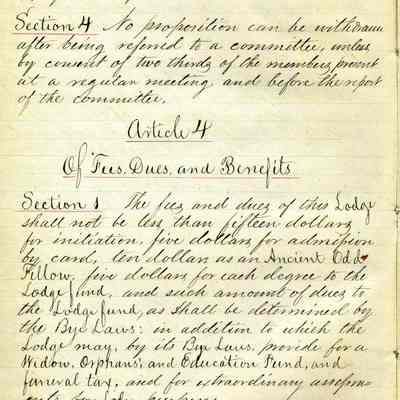 Section 4 No proposition can be withdrawn
after being refered to a committee, unless
by consent of two thirds of the members present
at a regular meeting, and before the report
of the committee.
Article 4
Of Fees, Dues, and Benefits
Section 1 The fees and dues of this Lodge
shall not be less than fifteen dollars
for initiation, five dollars for admission
by card, ten dollars as an Ancient Odd
Fellow, five dollars for each degree to the
Lodge fund, and such amount of dues to
the Lodge fund, as shall be determined by
the Bye Laws: in addition to which the
Lodge may, by its Bye Laws, provide for a
Widow, Orphans, and Education Fund, and
funeral tax, and for extraordinary assessm-
ents for